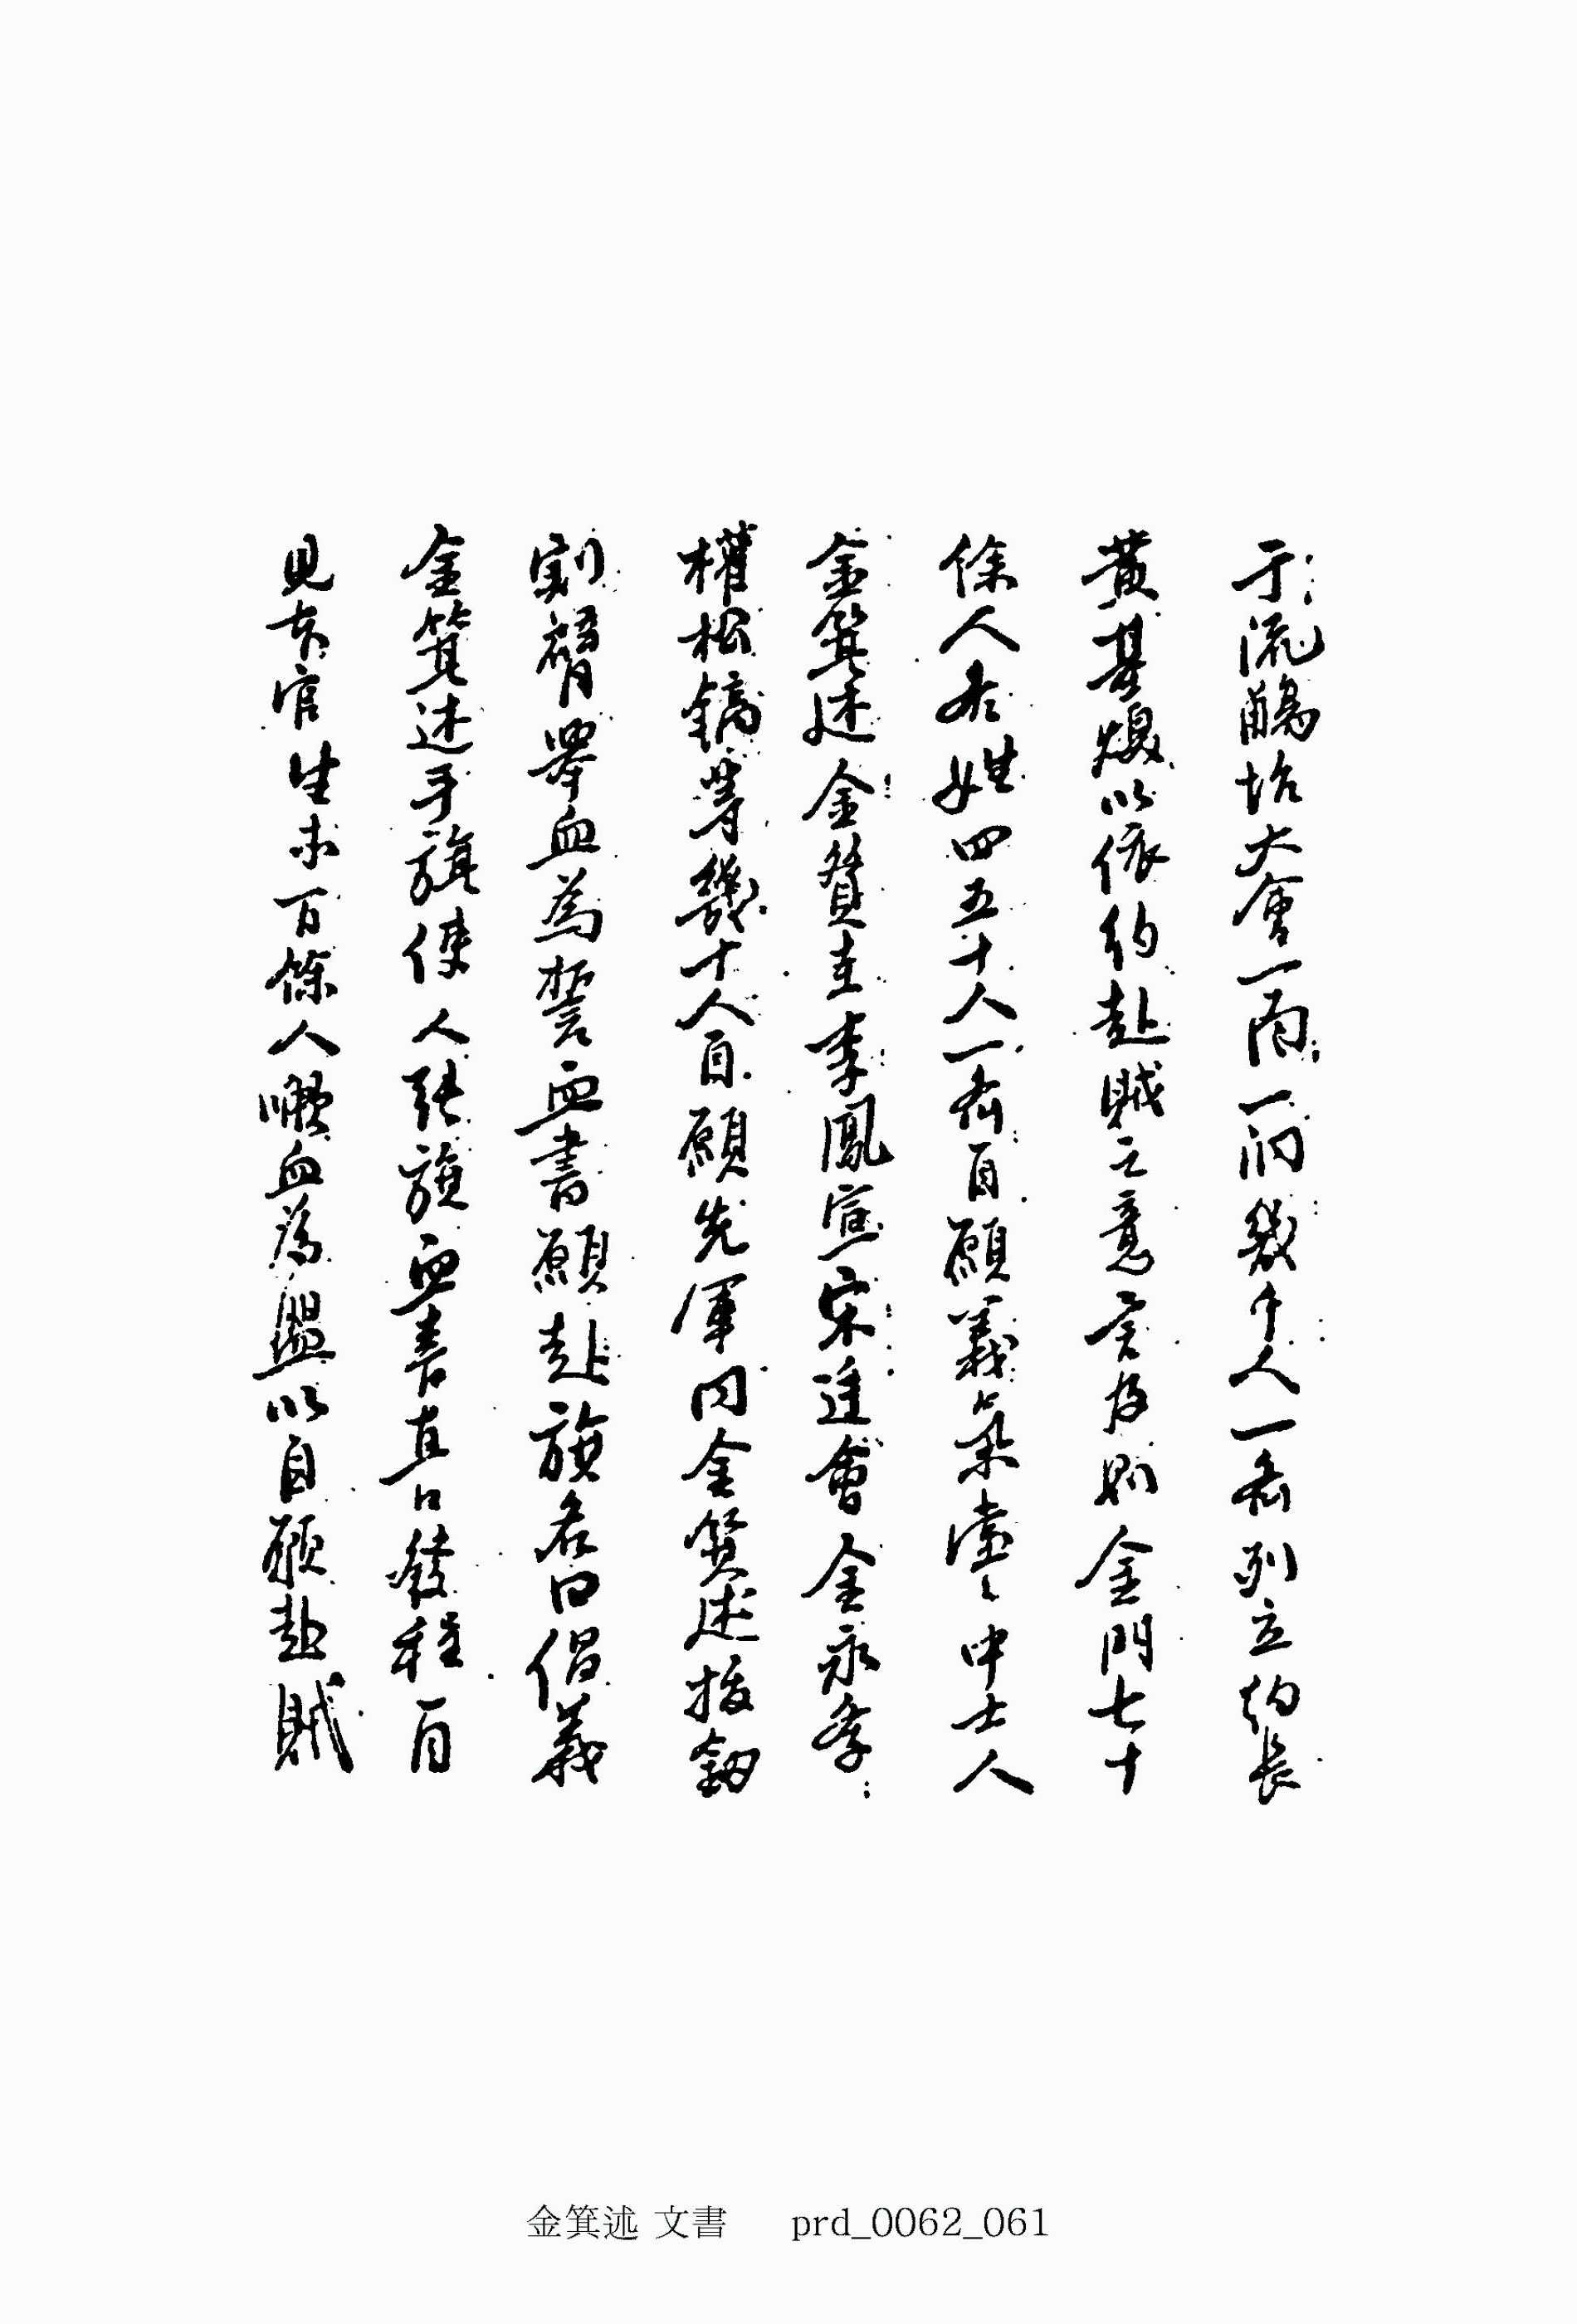 于流觴坮大會一面一洞幾千人一齊列立約長
黃基熀以依約赴賊之意言及則金門七十
餘人各姓四五十人一齊自願義氣堂〻中士人
金箕述金贊圭李鳳宣宋進會金永孝
權松鎬等幾十人自願先軍同金箕述拔劒
割臂擧血爲誓血書願赴旗名曰倡義
金箕述手旗使人張旗血書直書發程百
見本官生未百餘人嚥血爲盟以自願赴賊
金箕述 文書 prd_0062_061